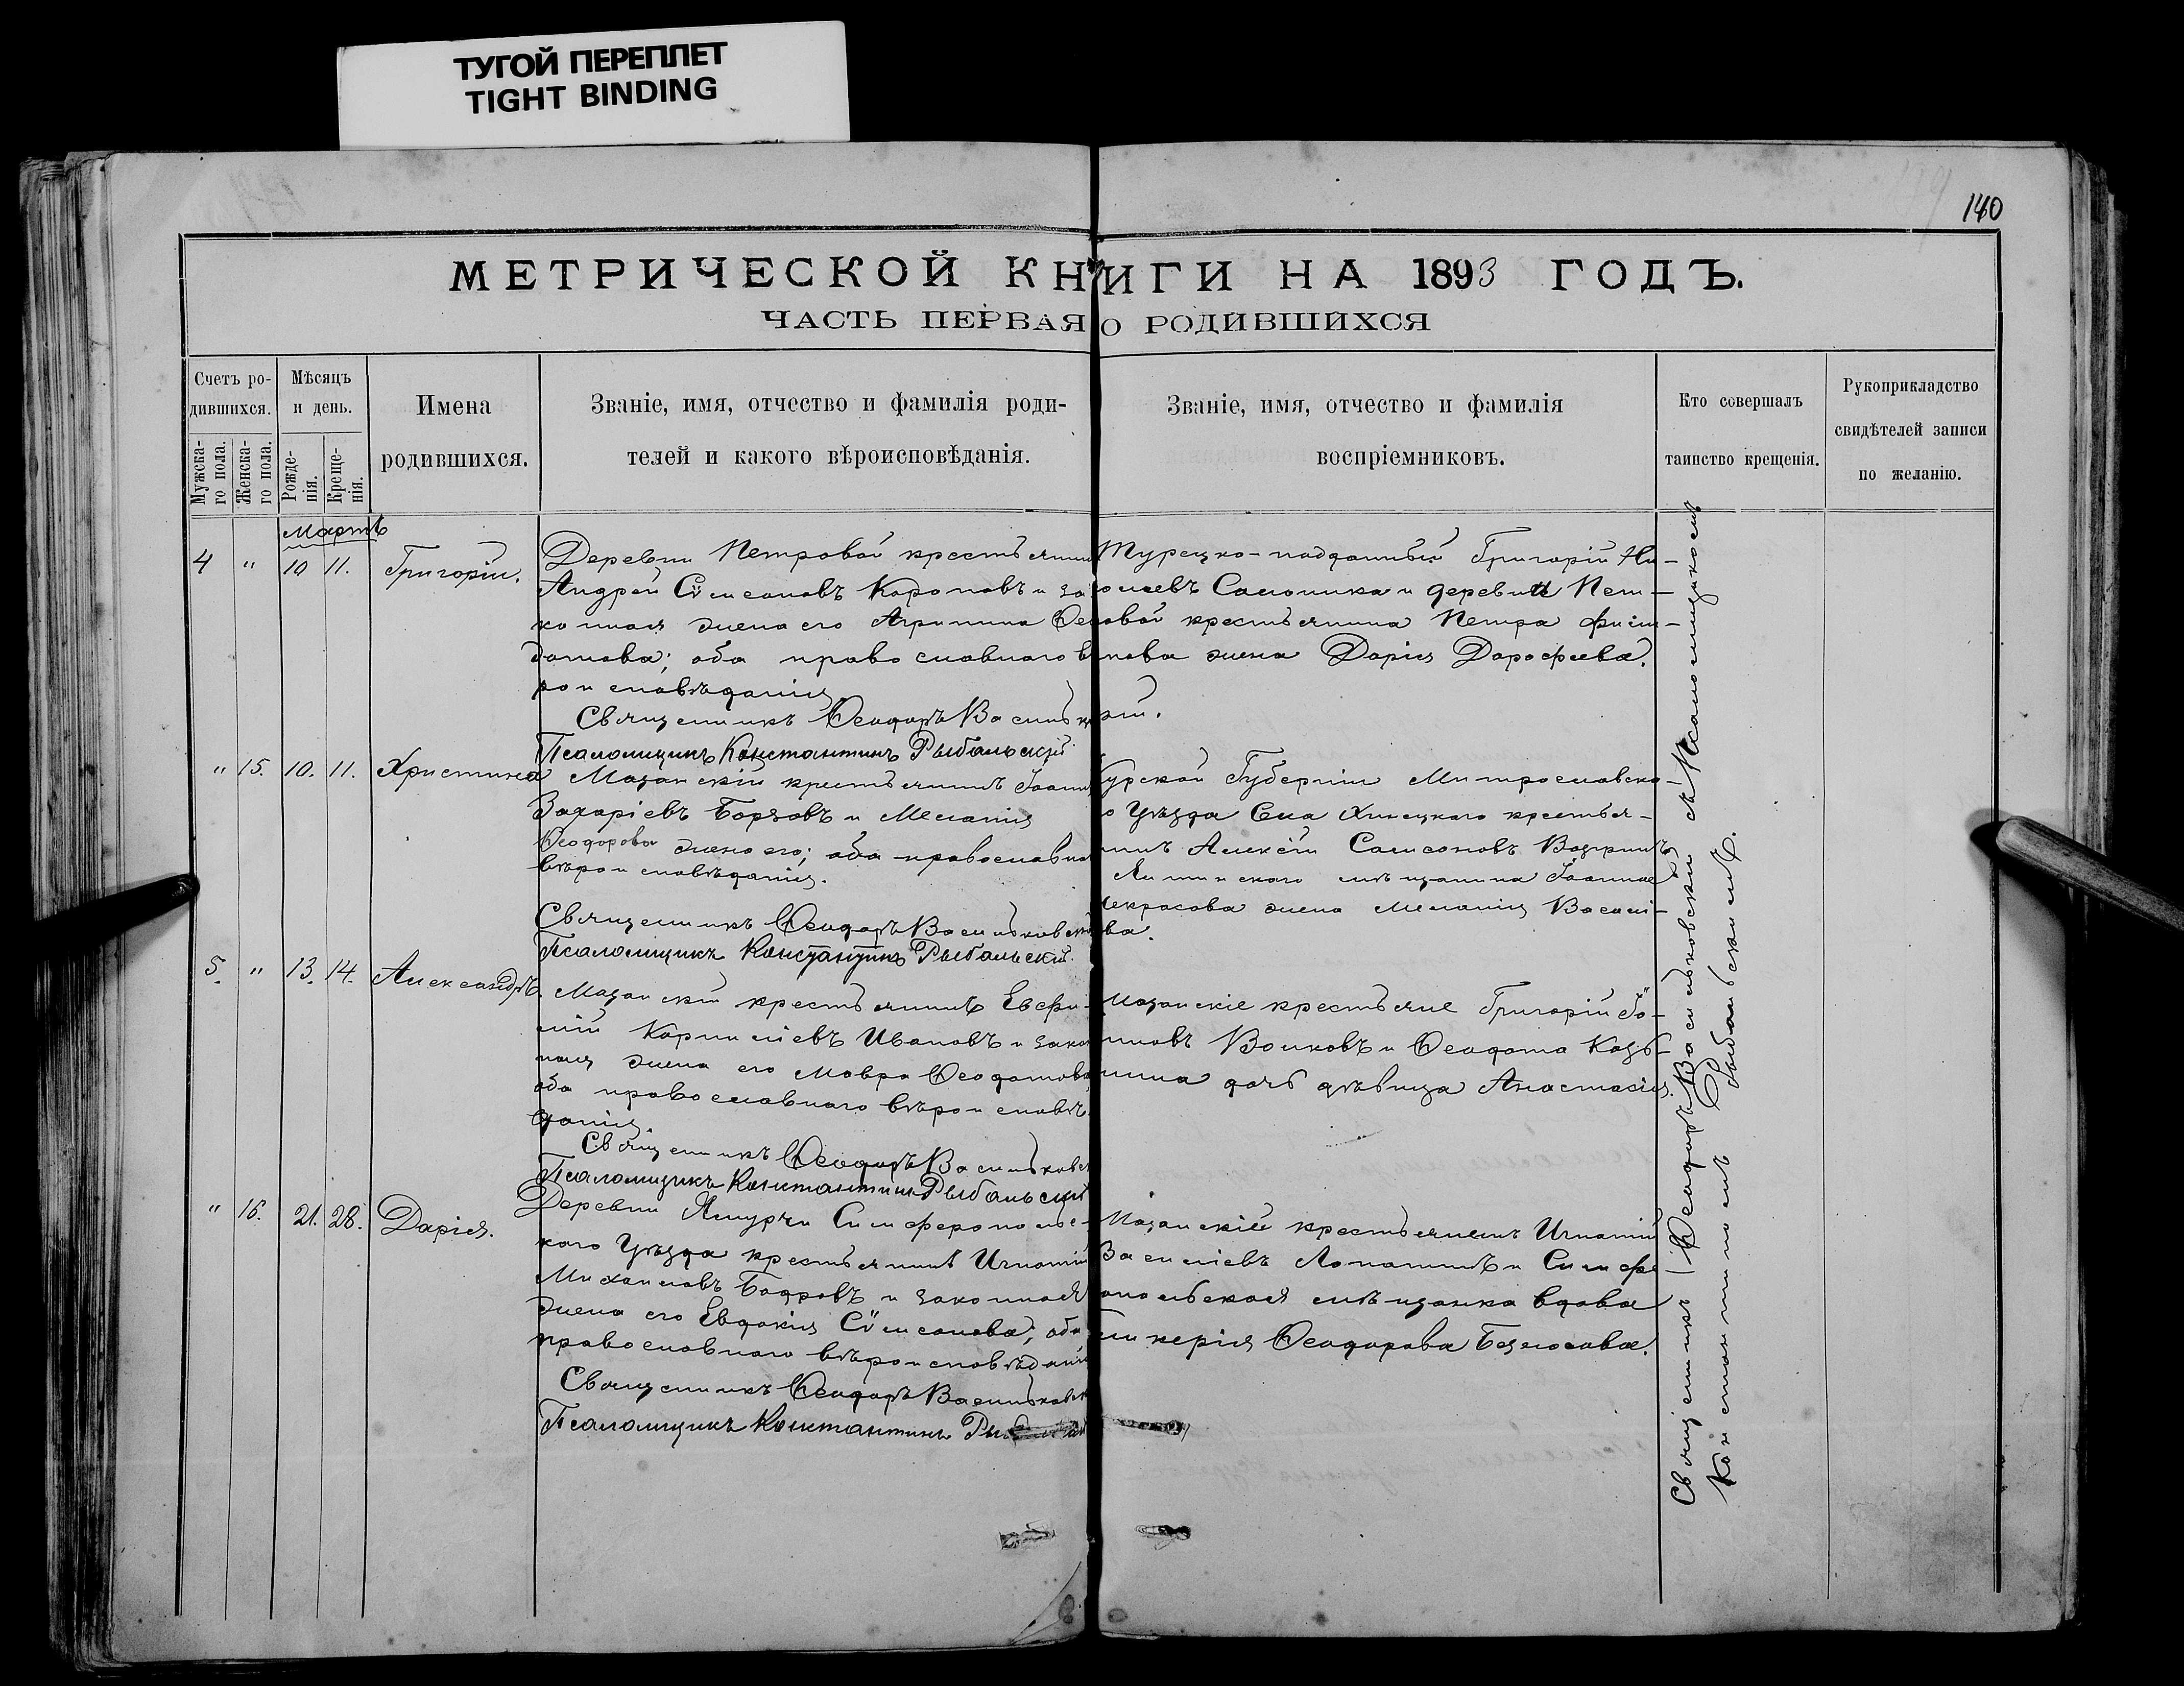 ТУГОЙ ПЕРЕПЛЕТ
TIGHT BINDING
140
МЕТРИЧЕСКОЙ КНИГИ НА 1893 ГОДЪ.
ЧАСТЬ ПЕРВАЯ О РОДИВШИХСЯ
Счетъ ро-
дившихся.
Мужска-
го пола.
Женска-
го пола.
Мѣсяцъ
и день.
Рожде-
нія.
Креще-
нія.
Имена
родившихся.
Званіе, имя, отчество и фамилія роди-
телей и какого вѣроисповѣданія.
Званіе, имя, отчество и фамилія
воспріемниковъ.
Кто совершалъ
таинство крещенія.
Рукоприкладство
свидѣтелей записи
по желанію.
Мартъ
4 " 10 11. Григорій.
Деревни Петровой крестьянинъ
Андрей Сѵмеоновъ и за-
конная жена его Агрипина Ѳео-
дотова; оба православнаго вѣ
роисповѣданія.
Священникъ Ѳеодоръ Васильк
Псаломщикъ Константинъ Рыбальскій
Турецко-подданный Григорій Ни-
и деревни Пет-
овой крестьянина Петра
нова жена Дарія Дорофеева.
кій.
" 15. 10. 11. Христина
Мазанскій крестьянинъ Іоаннъ
Захаріевъ Борзовъ и Меланія
Ѳеодорова жена его; оба православна
вѣроисповѣданія.
Священникъ Ѳеодоръ Васильковскій
Псаломщикъ Константинъ Рыбальскій.
Курской Губерніи
о Уѣзда Села крестья-
нинъ Алексій Самсоновъ
мѣщанина Іоанна
Некрасова жена Меланія Василі-
ва.
5. " 13. 14. Александръ.
Мазанскій крестьянинъ Евфи-
мій Корниліевъ Ивановъ и закон
ная жена его Мавра Ѳеодотова
оба православнаго вѣроисповѣ-
данія.
Священникъ Ѳеодоръ Васильковс
Псаломщикъ Константинъ Рыбальскій
Мазанскіе крестьяне Григорій Іо-
нновъ Волковъ и Ѳеодота Козь-
мина дочь дѣвица Анастасія.
" 16. 21. 28. Дарія.
Деревни Ямурчи Симферопольс-
каго Уѣзда крестьянинъ Игнатій
Михаиловъ Бодровъ и законная
жена его Евдокія Сѵмеонова; оба
православнаго вѣроисповѣданія
Священникъ Ѳеодоръ Васильковск
Псаломщикъ Константинъ
Мазанскій крестьянинъ Игнатій
Василіевъ Лопатинъ и Симфе
опольская мѣщанка вдова
Гликерія Ѳеодорова Безносова.
Священникъ Ѳеодоръ Васильковскій съ Псаломщикомъ
Константиномъ Рыбальскимъ.